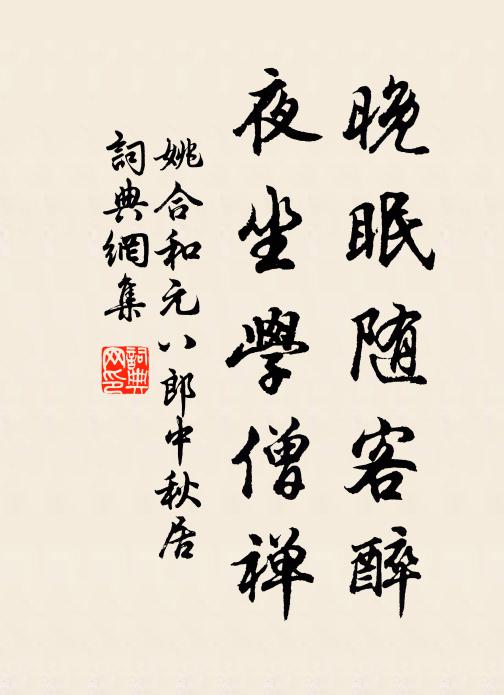 晚眠随客醉
夜坐學僧禅
姚合和元八郎中秋居
詞典網集
詞典網印